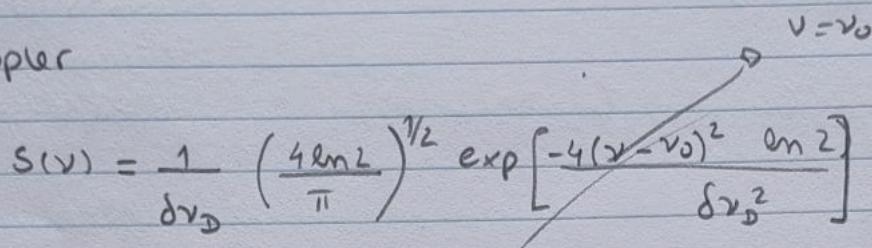 ν = ν₀
pler
S(ν) = 1/δν_D (4 ln 2/π)^1/2 exp[-4(ν-ν₀)² ln 2/δν_D²]